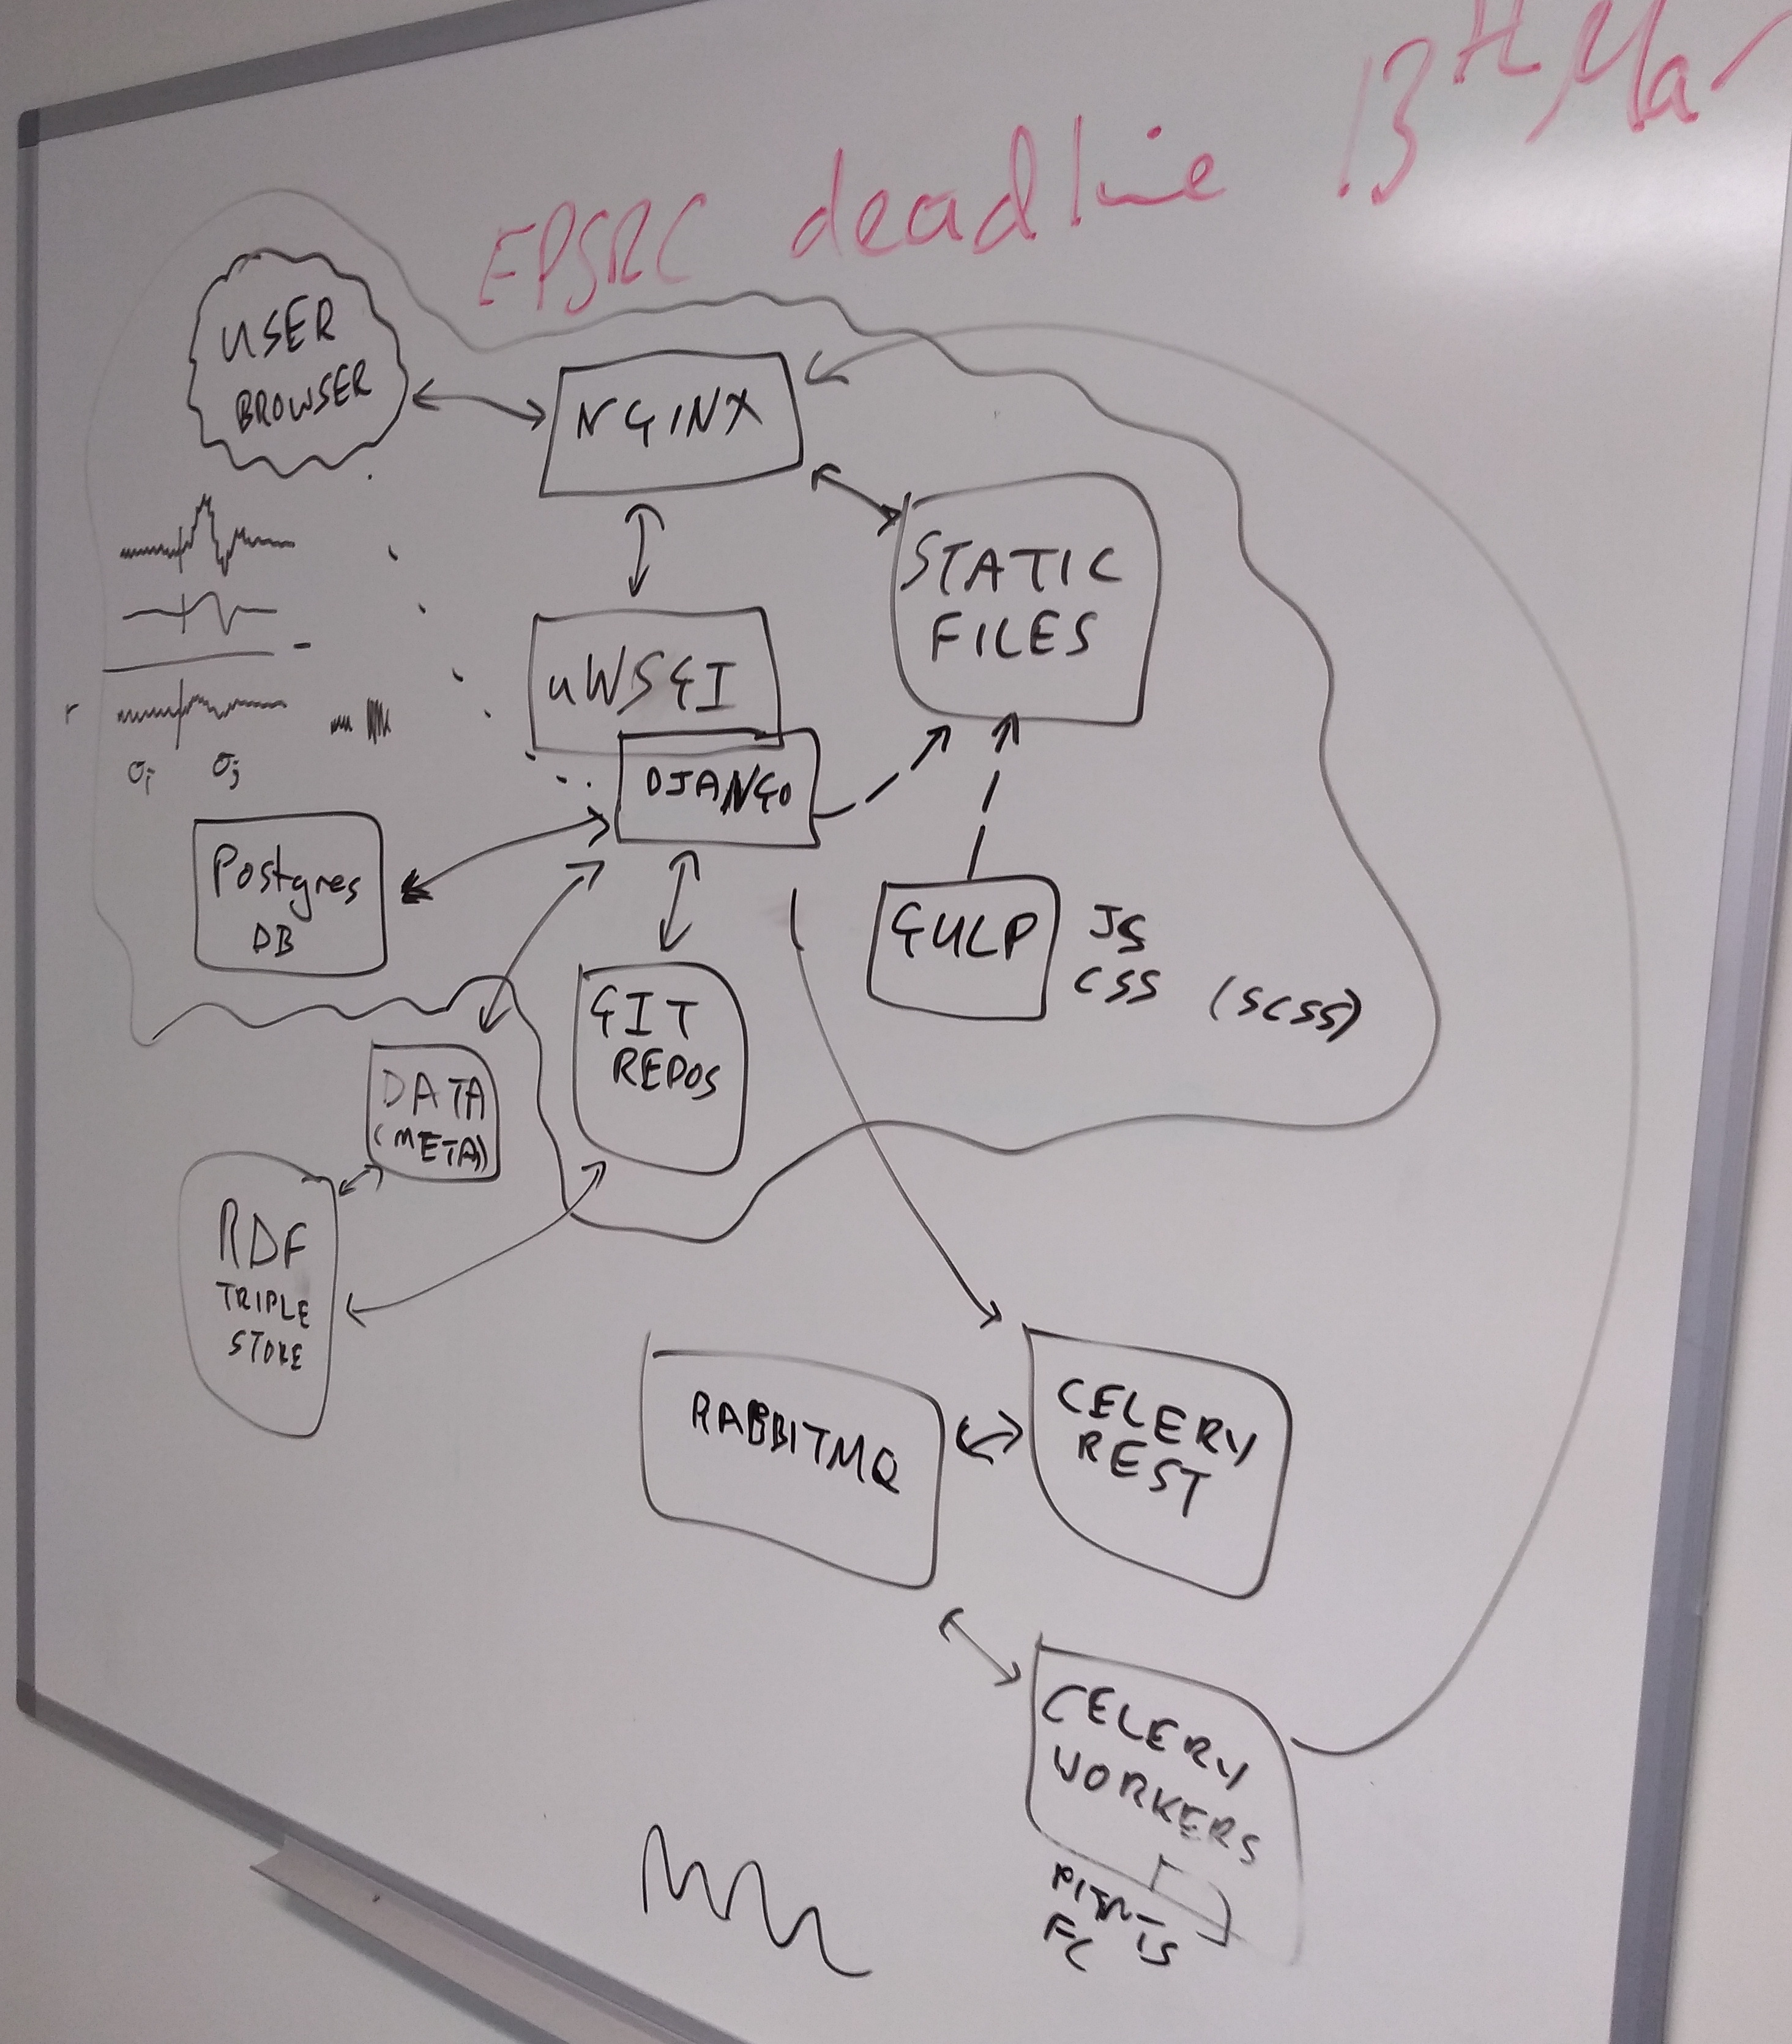 EPSRC deadline 13th Mar
USER
BROWSER
NGINX
STATIC
FILES
uWSGI
DJANGO
r
σi σj
Postgres
DB
GULP
JS
CSS (SCSS)
GIT
REPOS
DATA
(META)
RDF
TRIPLE
STORE
RABBITMQ
CELERY
REST
CELERY
WORKERS
FC